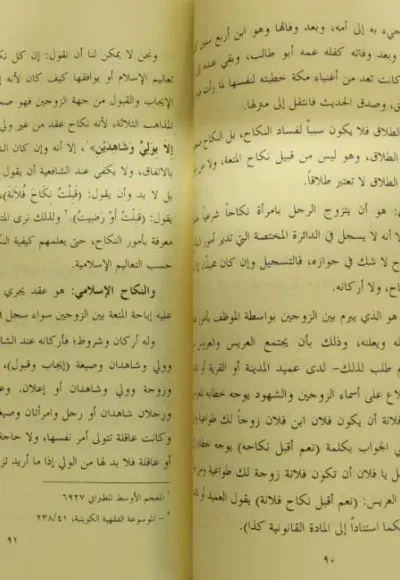 جيء به إلى أمه، وبعد وفاتها وهو ابن أربع سنين
وبعد وفاته كفله عمه أبو طالب، وبقي عنده إلى
كانت تعد من أغنياء مكة خطبته لنفسها لما رأت فيه
وصدق الحديث فانتقل إلى منزلها.
الطلاق فلا يكون سبباً لفساد النكاح، بل النكاح
الطلاق، وهو ليس من قبيل نكاح المتعة، ولا
الطلاق لا تعتبر طلاقاً.
هو أن يتزوج الرجل بامرأة نكاحاً شرعياً
لا أنه لا يسجل في الدائرة المختصة التي تدير أمور
ح لا شك في جوازه، فالتسجيل وإن كان
ح، ولا أركانه.
هو الذي يبرم بين الزوجين بواسطة الموظف بأمور
له ويعلنه، وذلك بأن يجتمع العريس والعروس
م طلب لذلك- لدى عميد المدينة أو القرية أو
لاع على أسماء الزوجين والشهود يوجه خطابه
فلانة أن يكون فلان ابن فلان زوجاً لك طواعية
في الجواب بكلمة (نعم أقبل نكاحه) يوجه
ل يا فلان أن تكون فلانة زوجة لك طواعية
العريس: (نعم أقبل نكاح فلانة) يقول العميد أو
كما استناداً إلى المادة القانونية كذا).
٩٠
ونحن لا يمكن لنا أن نقول: إن كل
تعاليم الإسلام أو يوافقها كيف كان لأنه
الإيجاب والقبول من جهة الزوجين فهو
المذاهب الثلاثة، لأنه نكاح عقد من غير
إلا بوَلِيٍّ وَشَاهِدَيْنِ»١، إلا أنه وإن كان
بالاتفاق، ولا يكفي عند الشافعية أن يقول
بل لا بد وأن يقول: (قَبِلْتُ نِكَاحَ فُلَانَة)،
يقول: (قَبِلْتُ أَوْ رَضِيتُ).٢ ولذلك نرى
معرفة بأمور النكاح، حتى يعلمهم كيفية
حسب التعاليم الإسلامية.
والنكاح الإسلامي: هو عقد يجري
عليه إباحة المتعة بين الزوجين سواء سجل في
وله أركان وشروط؛ فأركانه عند
وولي وشاهدان وصيغة (إيجاب وقبول)،
وزوجة وولي وشاهدان أو إعلان. وعند
ورجلان شاهدان أو رجل وامرأتان
وكانت عاقلة تتولى أمر نفسها، ولا حاجة
أو عاقلة فلا بد لها من الولي إذا ما أريد
١ المعجم الأوسط للطبراني ٦٩٢٧
٢ - الموسوعة الفقهية الكويتية، ٢٣٨/٤١
٩١